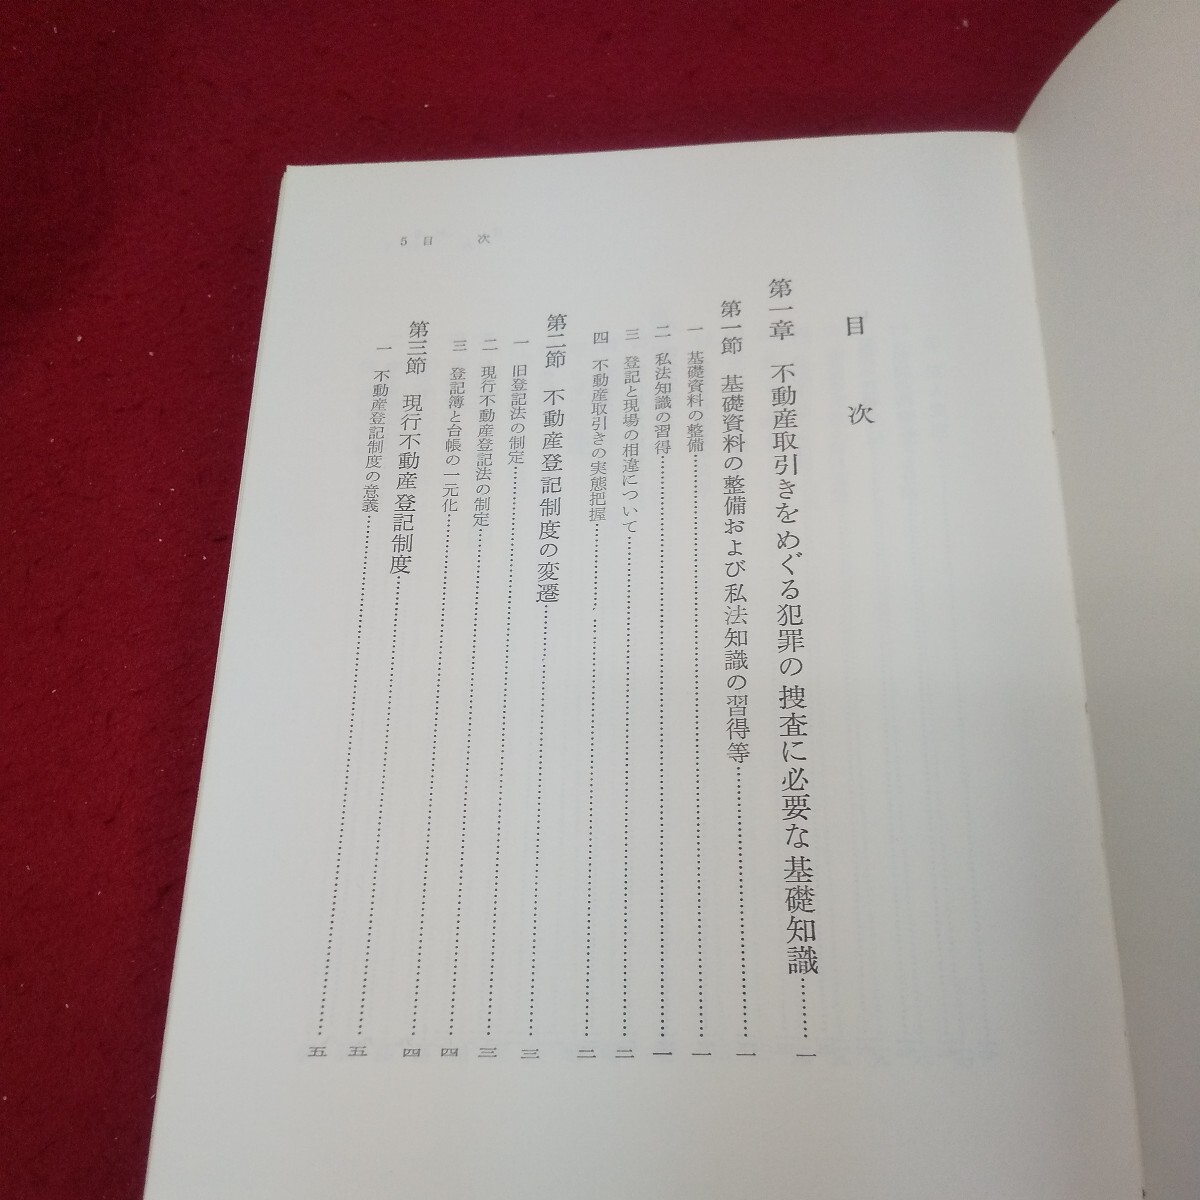 目次
第一章 不動産取引きをめぐる犯罪の捜査に必要な基礎知識…………一
第一節 基礎資料の整備および私法知識の習得等…………一
一 基礎資料の整備…………一
二 私法知識の習得…………一
三 登記と現場の相違について…………二
四 不動産取引きの実態把握…………二
第二節 不動産登記制度の変遷…………三
一 旧登記法の制定…………三
二 現行不動産登記法の制定…………四
三 登記簿と台帳の一元化…………四
第三節 現行不動産登記制度…………五
一 不動産登記制度の意義…………五
5 目次